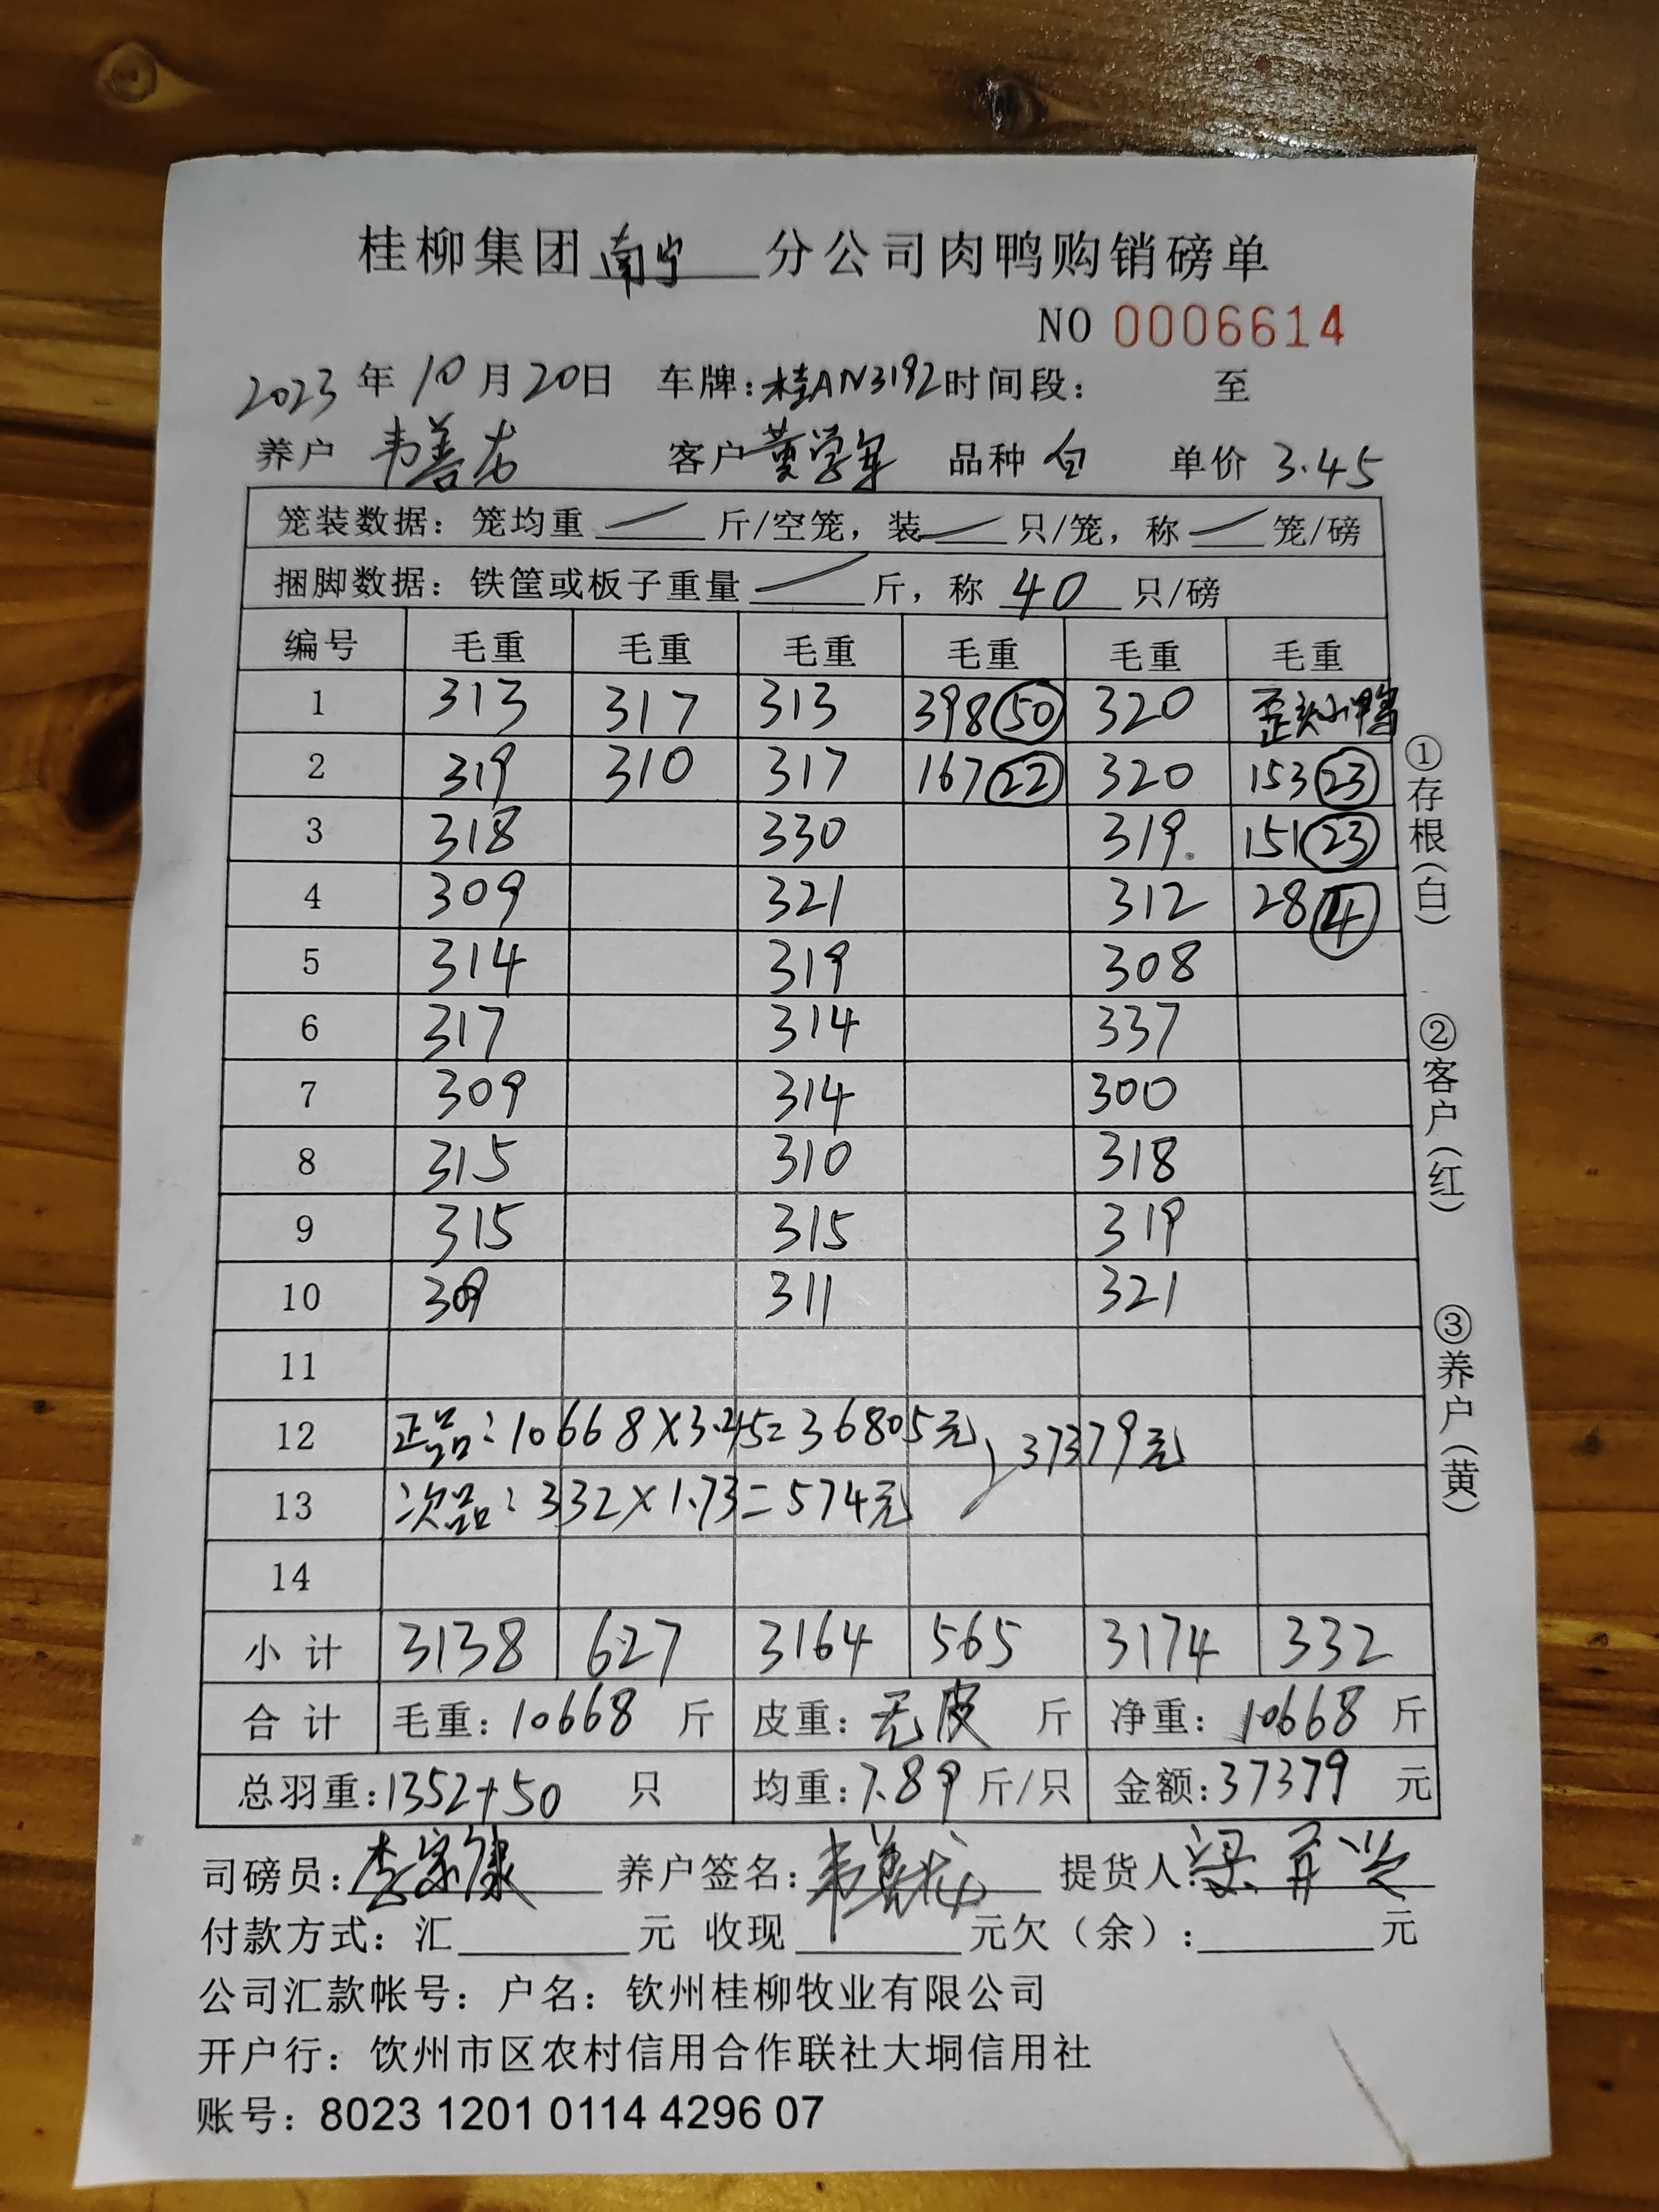 桂柳集团南宁分公司肉鸭购销磅单
NO 0006614
2023年10月20日 车牌:桂AN3192 时间段: 至
养户 韦善龙 客户 黄学军 品种 白 单价 3.45
笼装数据: 笼均重 — 斤/空笼, 装 — 只/笼, 称 — 笼/磅
捆脚数据: 铁筐或板子重量 — 斤, 称 40 只/磅
编号 毛重 毛重 毛重 毛重 毛重 毛重
1 313 317 313 398(50) 320 歪头小鸭
2 319 310 317 167(22) 320 153(23)
3 318 330 319 151(23)
4 309 321 312 28(4)
5 314 319 308
6 317 314 337
7 309 314 300
8 315 310 318
9 315 315 319
10 309 311 321
11
12 正品:10668×3.45=36805元 37379元
13 次品:332×1.73=574元
14
小计 3138 627 3164 565 3174 332
合计 毛重:10668斤 皮重:无皮 斤 净重:10668斤
总羽重:1352+50 只 均重:7.89斤/只 金额:37379元
司磅员: 养户签名:韦善龙 提货人:
付款方式: 汇 元 收现 元欠(余): 元
公司汇款帐号: 户名: 钦州桂柳牧业有限公司
开户行: 饮州市区农村信用合作联社大垌信用社
账号: 8023 1201 0114 4296 07
①存根(白)
②客户(红)
③养户(黄)